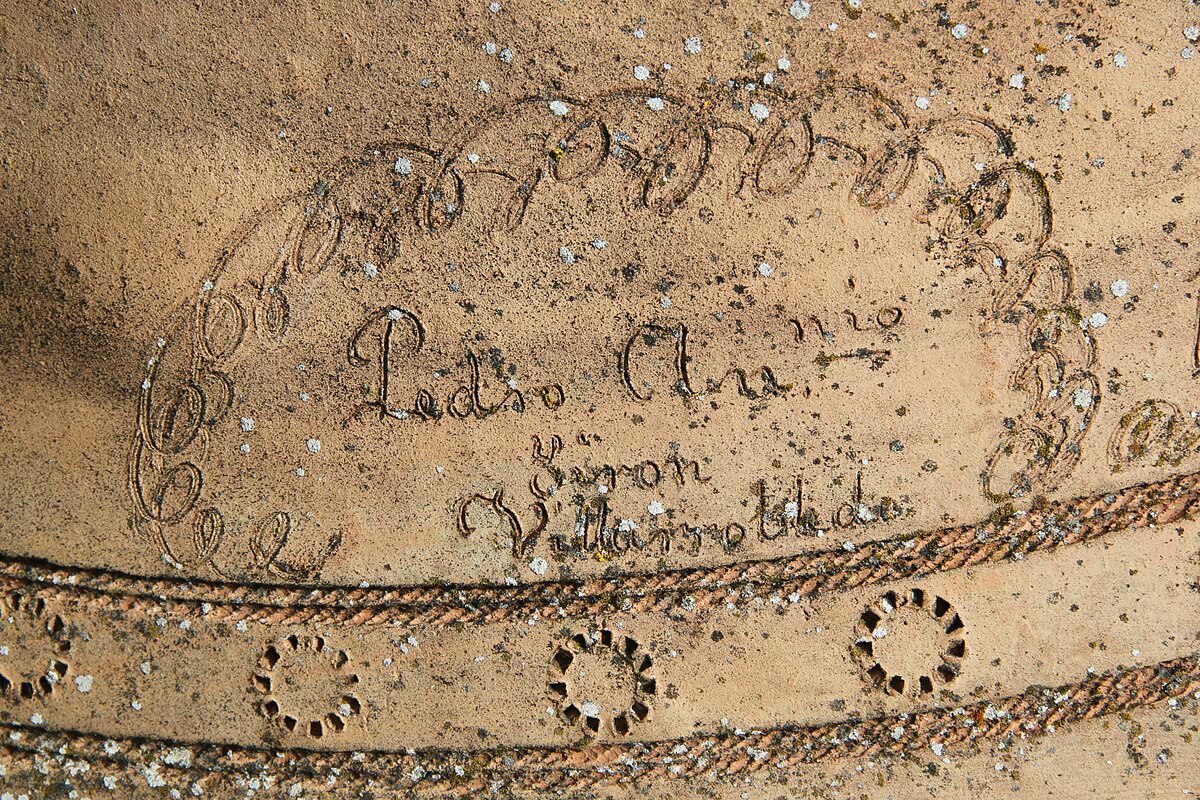 Pedro
Giron
Villarrobledo